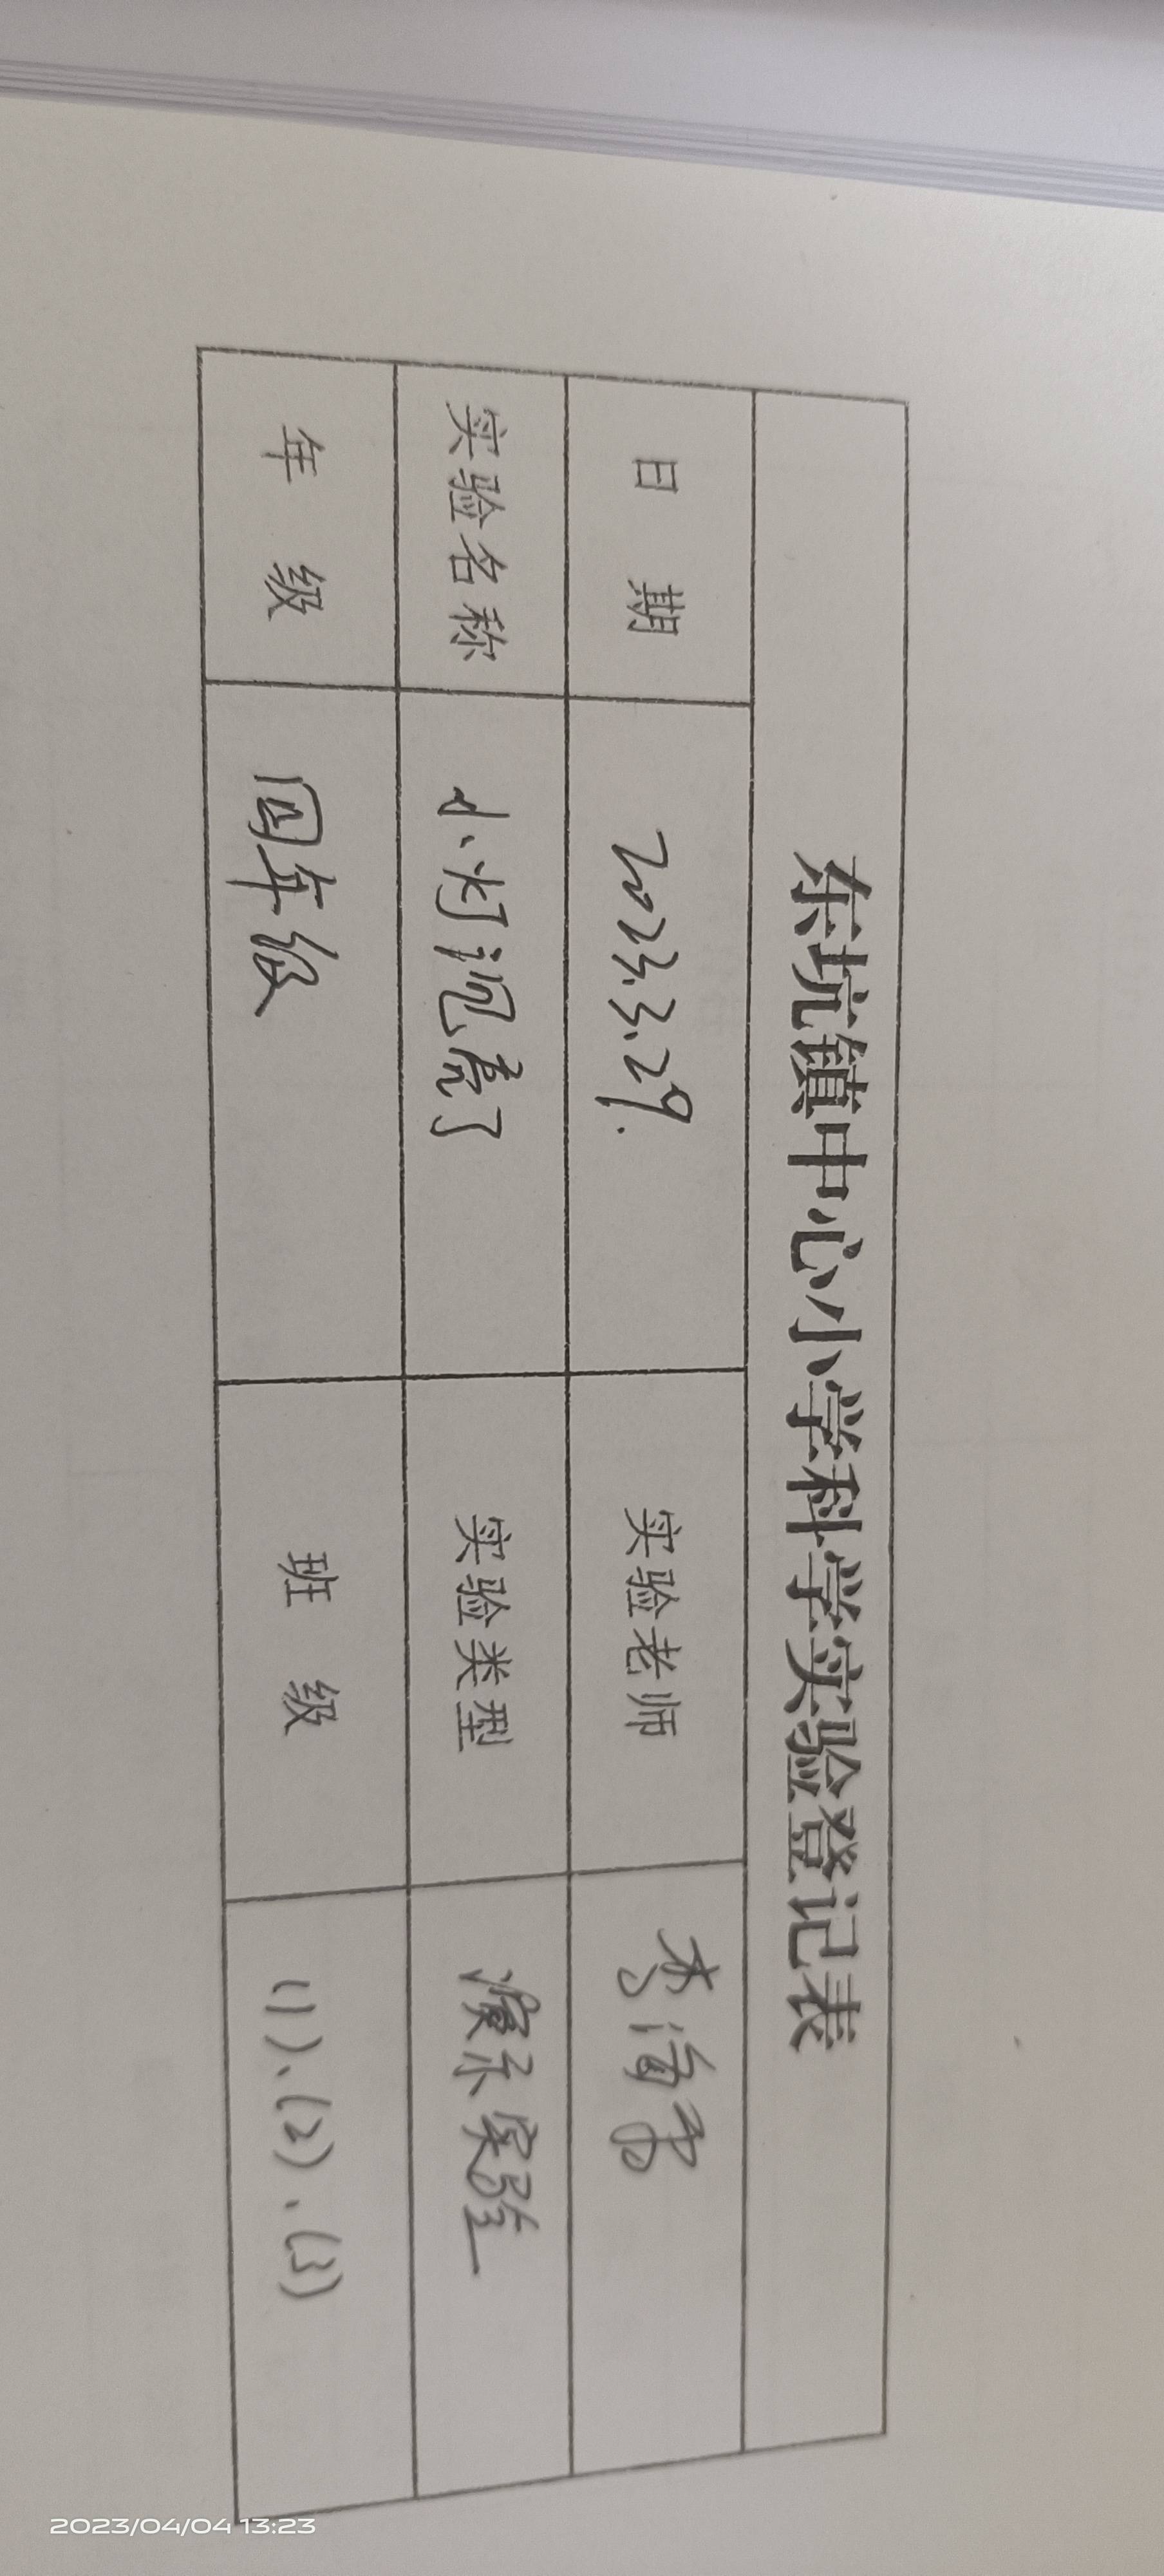 东坑镇中心小学科学实验登记表
日 期 2023.3.29. 实验老师 李海雷
实验名称 小灯泡亮了 实验类型 演示实验
年 级 四年级 班 级 (1)、(2)、(3)
2023/04/04 13:23